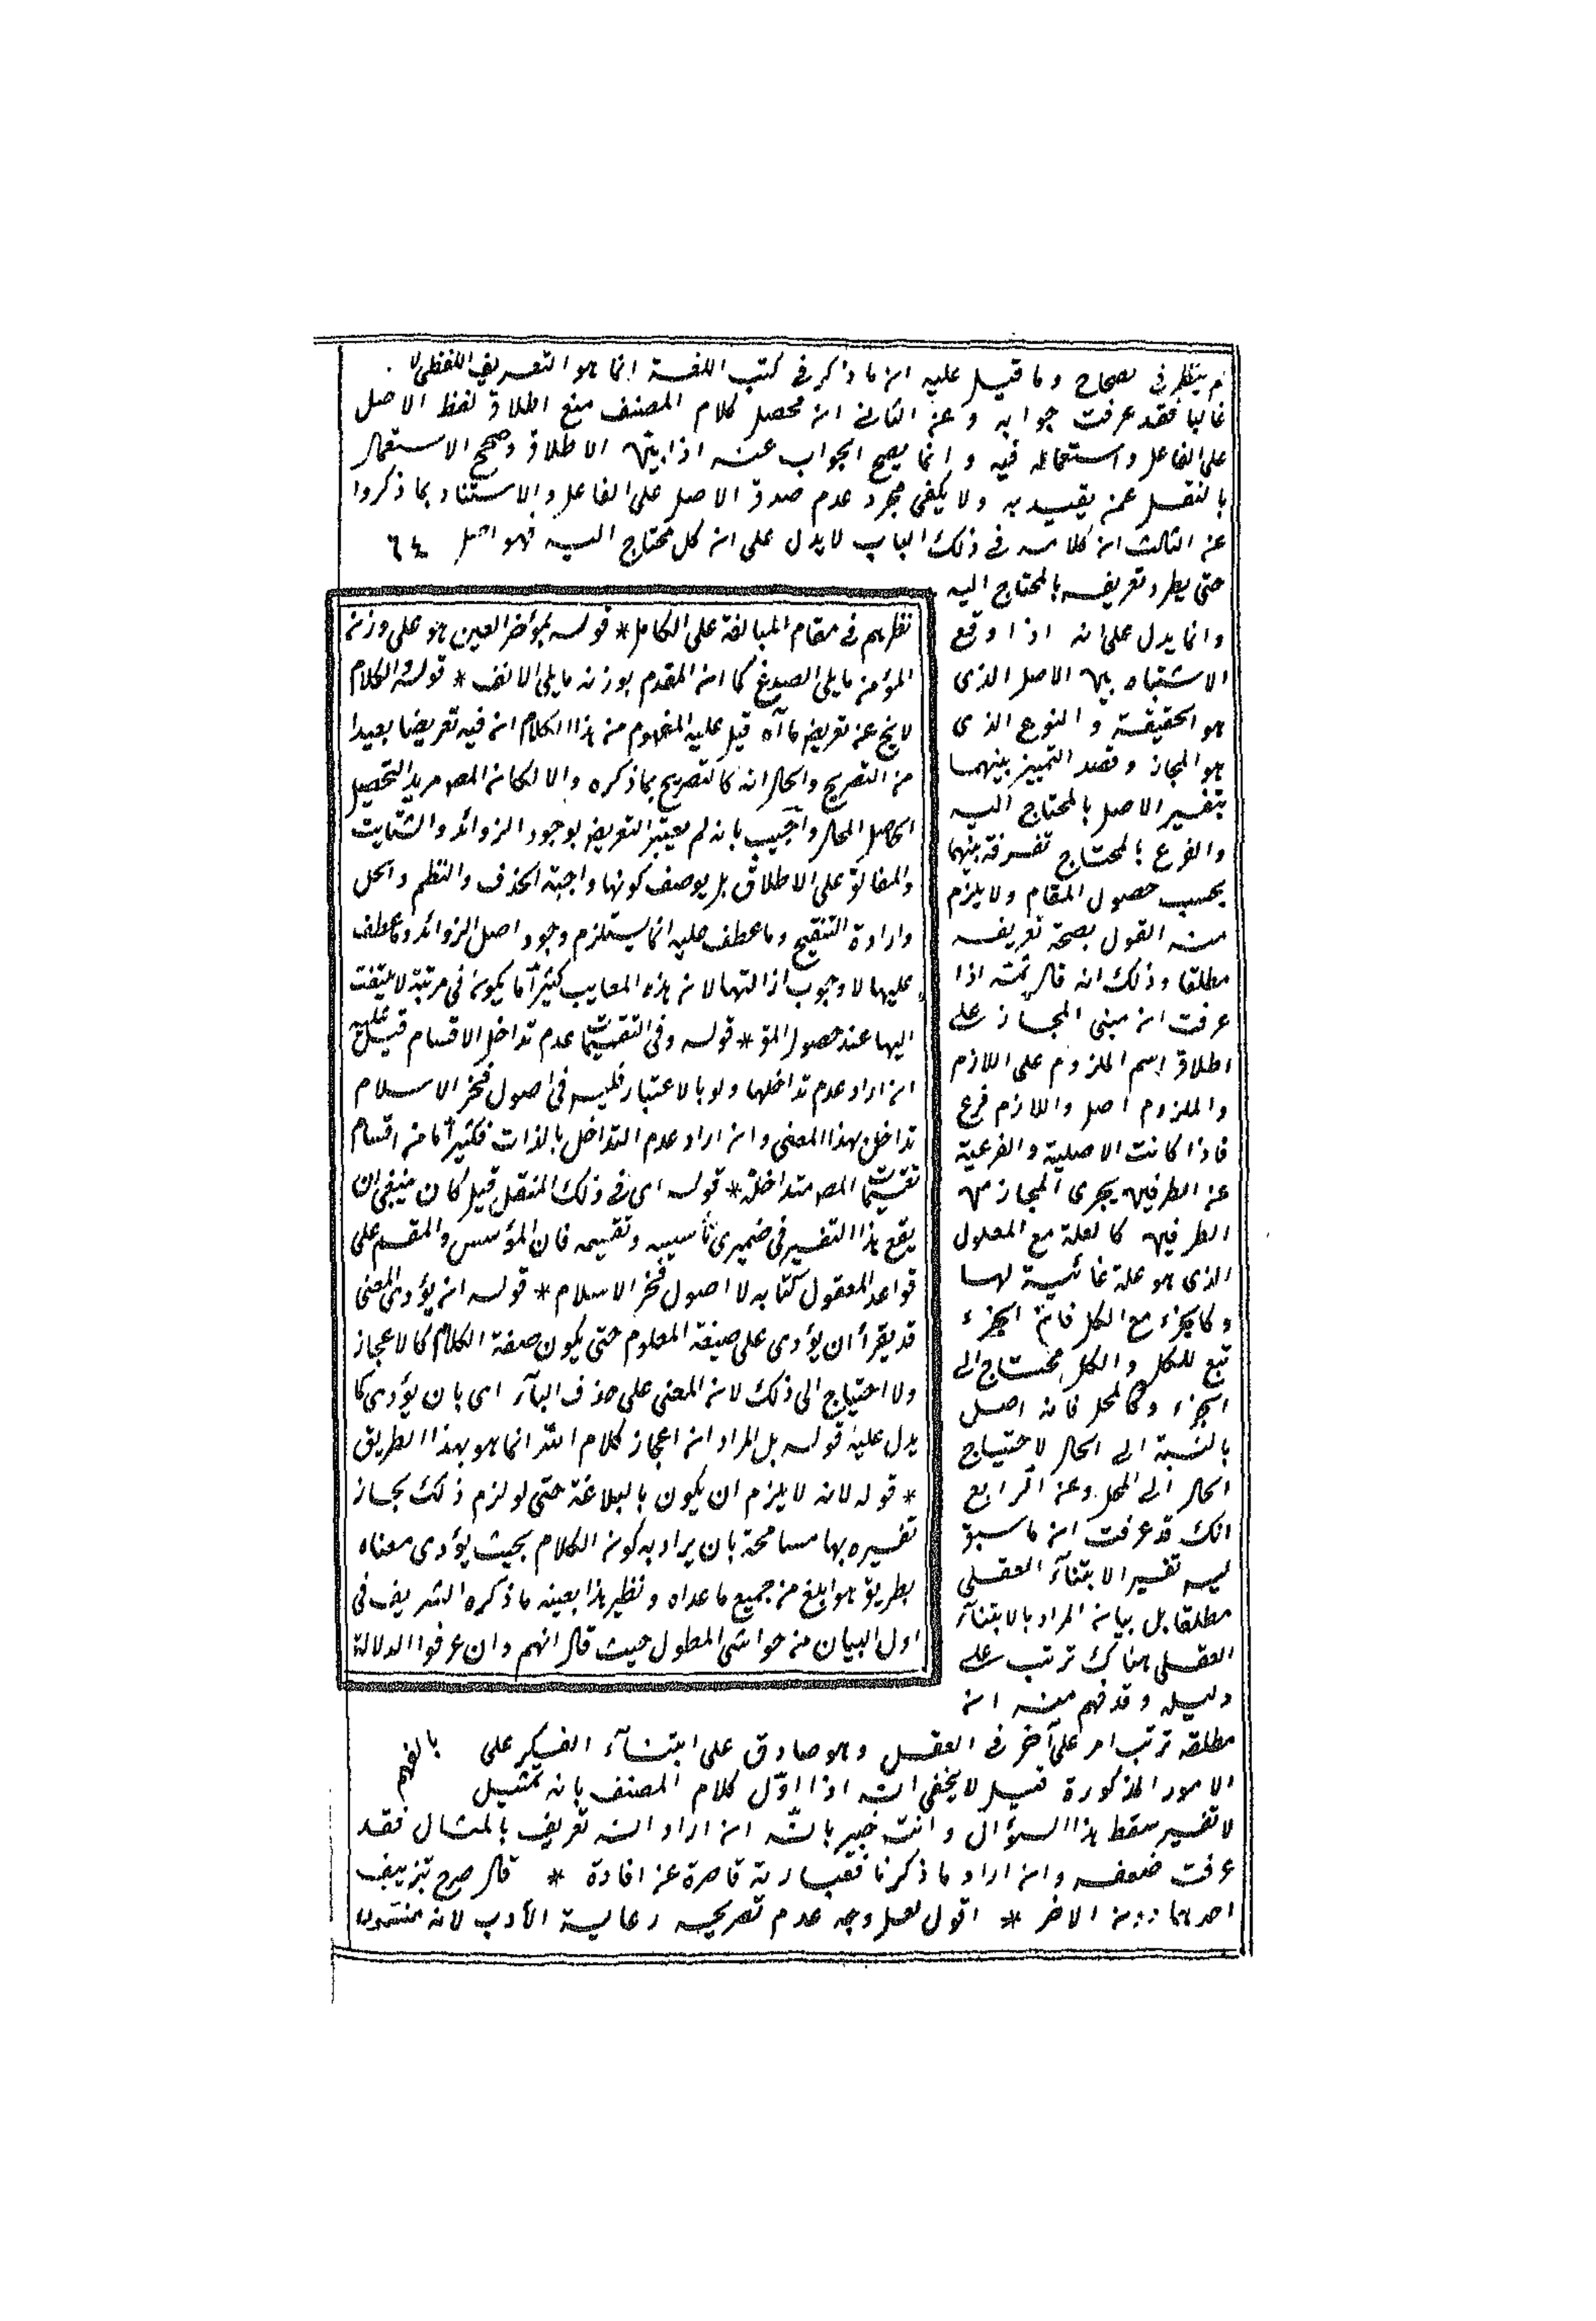 لم ينظر فى الصحاح وما قيل عليه ان ما ذكر فى كتب اللغة انما هو التعريف اللفظى لا
غالبا فقد عرفت جوابه وعن الثانى ان محصل كلام المصنف منع اطلاق لفظ الاصل
على الفاعل واستعماله فيه وانما يصح الجواب عنه اذا بين الاطلاق وصحح الاستعمال
بالنقل عمن يقيد به ولا يكفى مجرد عدم صدق الاصل على الفاعل والاستناد بما ذكروا
عن الثالث ان كلامه فى ذلك الباب لا يدل على ان كل محتاج اليه فهو اصل ٦٤
حتى يطرد تعريفه بالمحتاج اليه
وانما يدل على انه اذا وقع
الاشتباه بين الاصل الذى
هو الحقيقة و النوع الذى
هو المجاز وقصد التمييز بينهما
بتفسير الاصل بالمحتاج اليه
والفرع بالمحتاج تفرقة بينهما
بحسب حصول المقام ولا يلزم
منه القول بصحة تعريفه
مطلقا وذلك انه قال ثمة اذا
عرفت ان مبنى المجاز على
اطلاق اسم الملزوم على اللازم
والملزوم اصل واللازم فرع
فاذا كانت الاصلية والفرعية
عن الطرفين يجرى المجاز من
الطرفين كالعلة مع المعلول
الذى هو علة غائية لها
وكالجزء مع الكل فان الجزء
تبع للكل والكل محتاج الى
الجزء وكالمحل فانه اصل
بالنسبة الى الحال لاحتياج
الحال الى المحل وعن الرابع
انك قد عرفت ان ما سبق
ليس تفسير الابتناء العقلى
مطلقا بل بيان المراد بالابتناء
العقلى هناك ترتب على
دليله وقد فهم منه ان
مطلقه ترتب امر على آخر فى العقل وهو صادق على ابتناء الفكر على
الامور المذكورة قيل لا يخفى انه اذا اوّل كلام المصنف بانه تمثيل
لا تفسير سقط هذا السؤال وانت خبير بانه ان اراد انه تعريف بالمثال فقد
عرفت ضعفه وان اراد ما ذكرنا فعبارته قاصرة عن افادة * قال صرح بتزييف
احدهما دون الاخر * اقول لعل وجه عدم تصريحه رعاية الأدب لانه
بالفهم
نظرهم فى مقام المبالغة على الكامل * قوله بمؤخر العين هو على وزن
المؤمن ما يلى الصدغ كما ان المقدم بوزنه ما يلى الانف * قوله والكلام
لا يخ عن تعريض ما آه قيل عليه المفهوم من هذا الكلام ان فيه تعريضا بعيدا
من التصريح والحال انه كالتصريح بما ذكره والا لكان المصـ مريدا لتحصيل
الحاصل المحال وأجيب بانه لم يعتبر التعريض بوجود الزوائد والشتايت
والمغالق على الاطلاق بل بوصف كونها واجبة الحذف والنظم والحل
وارادة التنقيح وما عطف عليه انما يستلزم وجود اصل الزوائد وما عطف
عليها لا وجوب ازالتها لان هذه المعايب كثيرا ما يكون فى مرتبة لا يلتفت
اليها عند حصول المق * قوله وفى التقسيمات عدم تداخل الاقسام قيل عليه
ان اراد عدم تداخلها ولو بالاعتبار فليس فى اصول فخر الاسلام
تداخل بهذا المعنى وان اراد عدم التداخل بالذات فكثيرا ما من اقسام
تقسيمات المصـ متداخلة * قوله اى فى ذلك المنقل قيل كان ينبغى ان
يقع هذا التفسير فى ضميرى تأسيسه وتقسيمه فان المؤسس والمقسم على
قواعد المعقول كتابه لا اصول فخر الاسلام * قوله ان يؤدى المعنى
قد يقرأ ان يؤدى على صيغة المعلوم حتى يكون صفة الكلام كالاعجاز
ولا احتياج الى ذلك لان المعنى على حذف الباء اى بان يؤدى كما
يدل عليه قوله بل المراد ان اعجاز كلام الله انما هو بهذا الطريق
* قوله لانه لا يلزم ان يكون بالبلاغة حتى لو لزم ذلك لجاز
تفسيره بها مسامحة بان يراد به كون الكلام بحيث يؤدى معناه
بطريق هو ابلغ من جميع ما عداه ونظير هذا بعينه ما ذكره الشريف فى
اول البيان من حواشى المطول حيث قال انهم وان عرفوا الدلالة